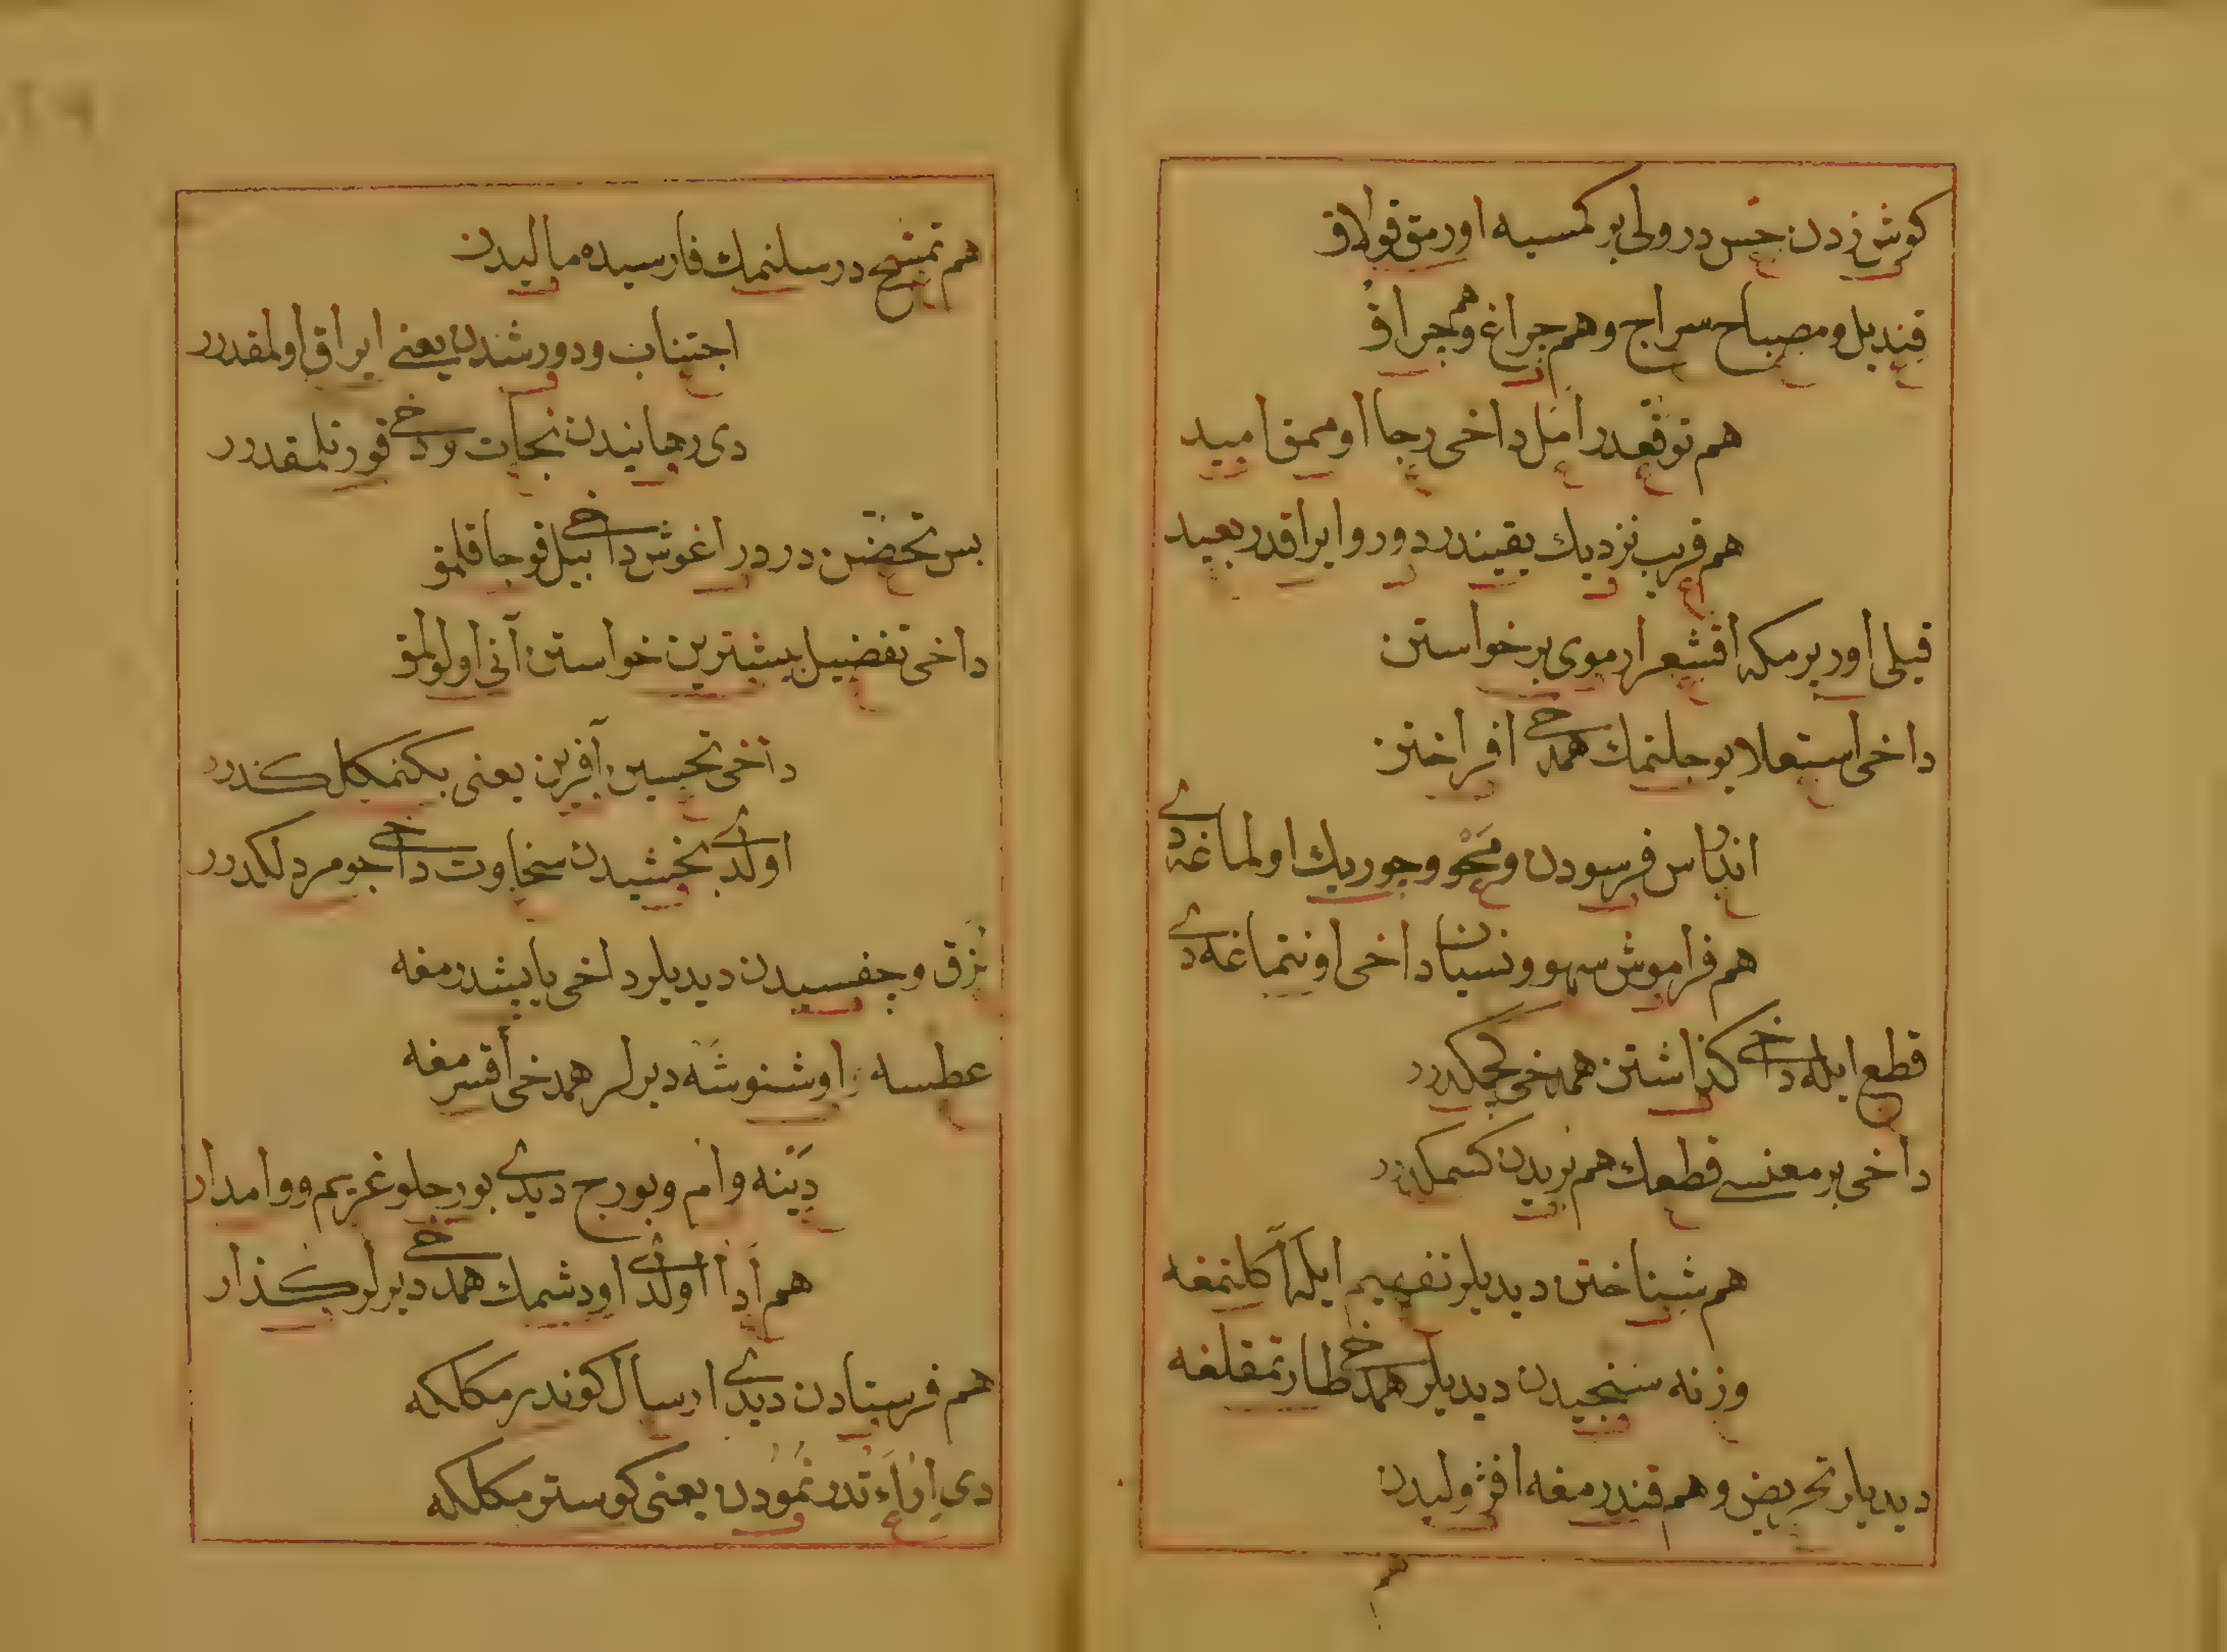 كوش زدن جس در ولی بر كمسیه اورمق قولاق
قندیل و مصباح سراج و هم جراغ و هم جراق
هم توقعدر امل داخی رجا اوممق امید
هم قریب نزدیك یقیندر دور و ایراقدر بعید
قیلی اور برمكه اقشعرار موی بر خواستن
داخی استعلا یوجلنمك همدخی افراختن
اندراس فرسودن و محو و جوریك اولماغه دی
هم فراموش سهو و نسیان داخی اونتماغه دی
قطع ایله داخی كذاشتن همدخی كجمكدرر
داخی بر معنسی قطعك هم بریدن كسمكدرر
هم شناختن دیدیلر تفهیم ایله اكلنمغه
وزنه سنجیدن دیدیلر همدخی طارتمقلغه
دیدیلر تحریض و هم قندرمغه افژولیدن
هم
هم تمسح در سلنمك فارسیده مالیدن
اجتناب و دور شدن یعنی ایراق اولمقدرر
دی رهانیدن نجات و دخی قورتلمقدرر
بس تحضن در در اغوش داخی بیل قوجاقلمق
داخی تفضیل بیشترین خواستن آنی اولولمق
داخی تحسین آفرین یعنی بكنمكلكدرر
اولدی بخشیدن سخاوت داخی جومردلكدرر
نزق و جفسیدن دیدیلر داخی یابشدرمغه
عطسه اوشنوشه دیرلر همدخی اقسرمغه
دینه وام و بورج دیدی بورجلو غریم و وامدار
هم ادا اولدی اودشمك همدخی دیرلر كذار
هم فرستادن دیدی ارسال كوندرمكلكه
دی اراءتدر نمودن یعنی كوسترمكلكه